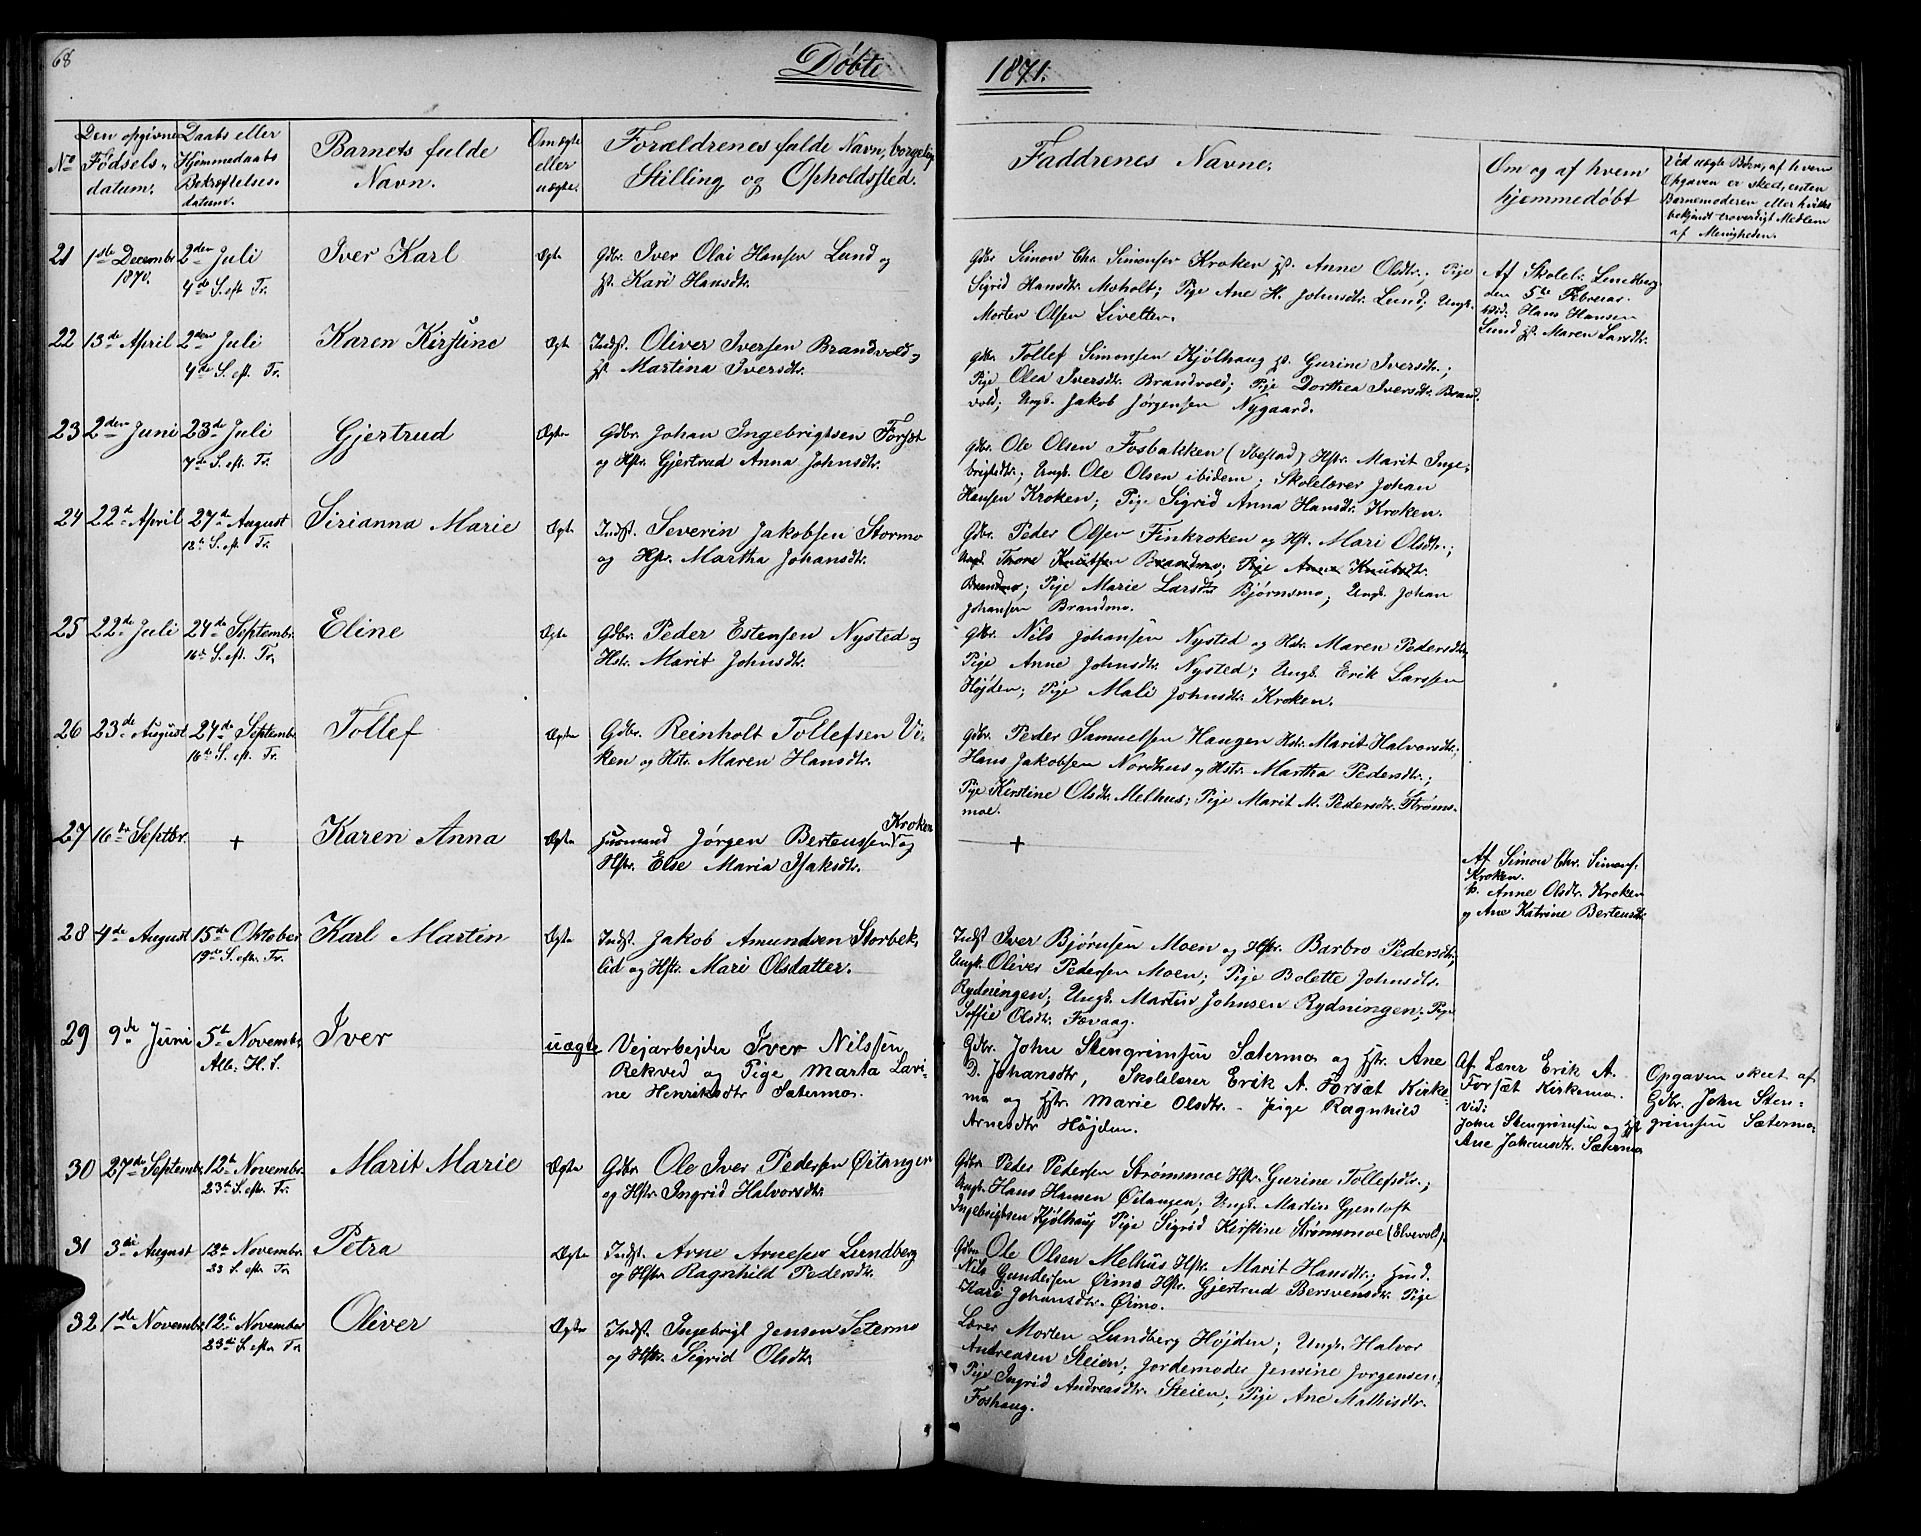 68
Døbte
1871.
No
Den opgivne Fødsels-datum.
Daabs eller Hjemmedaabs Bekræftelses-datum.
Barnets fulde Navn.
Om ægte eller uægte.
Forældrenes fulde Navn, borgelig Stilling og Opholdssted.
Faddrenes Navne.
Om og af hvem hjemmedøbt
Ved uægte Børn, af hvem Opgaven er skeet, enten Barnemoderen eller hvilke bekjendt troverdigt Medlem af Menigheden.
21 1ste Decembr 1870. 2den Juli 4de S. eft Tr. Iver Karl Ægte
Gdbr. Iver Olai Hansen Lund og
H. Kari Hansdtr.
Gdbr Simon Chr. Simonsen Kroken H. Anne Olsdtr.; Pige
Sigrid Hansdtr. Moholt; Pige Ane H. Johnsdtr. Lund; Ungk.
Morten Olsen Livelten.
Af Skolel. Lundberg
den 5te Februar.
vid: Hans Hansen
Lund H. Maren Larsdtr.
22 13de April 2den Juli 4de S. eft. Tr. Karen Kirstine Ægte
Indst. Oliver Iversen Brandvold og
H. Martina Iversdtr.
Gdbr Tollef Simonsen Kjølhaug H. Gurine Iversdtr.;
Pige Olea Iversdtr. Brandvold; Pige Dorthea Iversdtr. Brand-
vold; Ungk. Jakob Jørgensen Nygaard.
23 2den Juni 23de Juli 7de S. eft. Tr. Gjertrud Ægte
Gdbr. Johan Ingebrigtsen Forsæt
og Hstr. Gjertrud Anna Johnsdtr.
Gdbr. Ole Olsen Fosbakken (Ibestad) Hstr. Marit Inge-
brigtsdtr.; Ungk. Ole Olsen ibidem; Skolelærer Johan
Hansen Kroken; Pige Sigrid Anna Hansdtr. Kroken.
24 22de April 27de August 12te S. eft. Tr. Sirianna Marie Ægte
Indst. Severin Jakobsen Stormo
og Hstr. Martha Johansdtr.
Gdbr. Peder Olsen Finkroken og Hst. Mari Olsdtr.;
Ungk Thore Knutsen Brandmo; Pige Anne Knutsdtr.
Brandmo; Pige Marie Larsdtr Bjørnsmo; Ungk. Johan
Johansen Brandmo.
25 22de Juli 24de Septembr. 16de S. eft. Tr. Eline Ægte
Gdbr. Peder Estensen Nysted og
Hstr. Marit Johnsdtr.
Gdbr. Nils Johansen Nysted og Hstr. Maren Pedersdtr.
Pige Anne Johnsdtr. Nysted; Ungk. Erik Larssen
Højden; Pige Mali Johnsdtr. Kroken.
26 23de August 24de Septembr. 16de S. eft. Tr. Tollef Ægte
Gdbr. Reinholt Tollefsen Vi-
ken og Hstr. Maren Hansdtr.
Gdbr. Peder Samuelsen Haugen Hstr. Marit Halvorsdtr.;
Hans Jakobsen Nordhus og Hstr. Martha Pedersdtr.;
Pige Kirstine Olsdtr. Melhus; Pige Marit M. Pedersdtr. Strøms-
moe.
27 16de Septbr. + Karen Anna Ægte
Husmand Jørgen Bertenssen Kroken og
Hstr. Else Maria Isaksdtr.
+
Af Simon Chr. Simons.
Kroken.
H. Anne Olsdtr. Kroken
og Ane Katrine Bertensdtr.
28 4de August 15de Oktober 19de S. eftr. Tr. Karl Martin Ægte
Indst. Jakob Amundsen Storbek-
lid og Hstr. Mari Olsdatter.
Indst Iver Bjørnsen Moen og Hstr. Barbro Pedersdtr.;
Ungk. Oliver Pedersen Moen; Pige Bolette Johnsdtr.
Rydningen; Ungk. Martin Johnsen Rydningen; Pige
Soffie Olsdtr. Fævaag.
29 9de Juni 5te Novembr. Alle. H. S. Iver uægte
Vejarbejder Iver Nilssen
Rekved og Pige Marta Lavi-
ne Henriksdtr Sætermo.
Gdbr. John Stengrimsen Sætermo og Hstr. Ane
D. Johansdtr, Skolelærer Erik A. Forsæt Kirke-
mo og Hstr. Marie Olsdtr. - Pige Ragnhild
Arnesdtr Højden.
Af Lærer Erik A.
Forsæt Kirkemo.
vid:
John Stengrimsen og Hst
Ane Johansdtr. Sætermo
Opgaven skeet af
Gdbr. John Sten-
grimsen Sætermo
30 27de Septembr. 12te Novembr. 23de S. eftr. Tr. Marit Marie Ægte
Gdbr Ole Iver Pedersen Øitangen
og Hstr. Ingrid Halvorsdtr.
Gdbr Peder Pedersen Strømsmoe Hstr. Gurine Tollefsdtr.;
Ungk. Hans Hansen Øitangen; Ungk. Martin Gjenloft
Ingebrigtsen Kjølhaug Pige Sigrid Kirstine Strømsmoe (Elvevold).
31 3die August 12te Novembr. 23 S. eftr Tr. Petra Ægte
Indst. Arne Arnesen Lundberg
og Hstr Ragnhild Pedersdtr.
Gdbr Ole Olsen Melhus Hstr. Marit Hansdtr.; Husmd.
Nils Gundersen Ørmo Hstr. Gjertrud Bersvensdtr. Pige
Kari Johansdtr. Ørmo.
32 1ste Novembr. 12te November 23de S. eftr Tr. Oliver Ægte
Indst. Ingebrigt Jensen Setermo
og Hstr. Sigrid Olsdtr.
Lærer Morten Lundberg Højden; Ungk. Halvor
Andreasen Steien; Jordemoder Jensine Jørgensen;
Pige Ingrid Andreasdtr. Steien; Pige Ane Mathisdtr.
Foshaug.